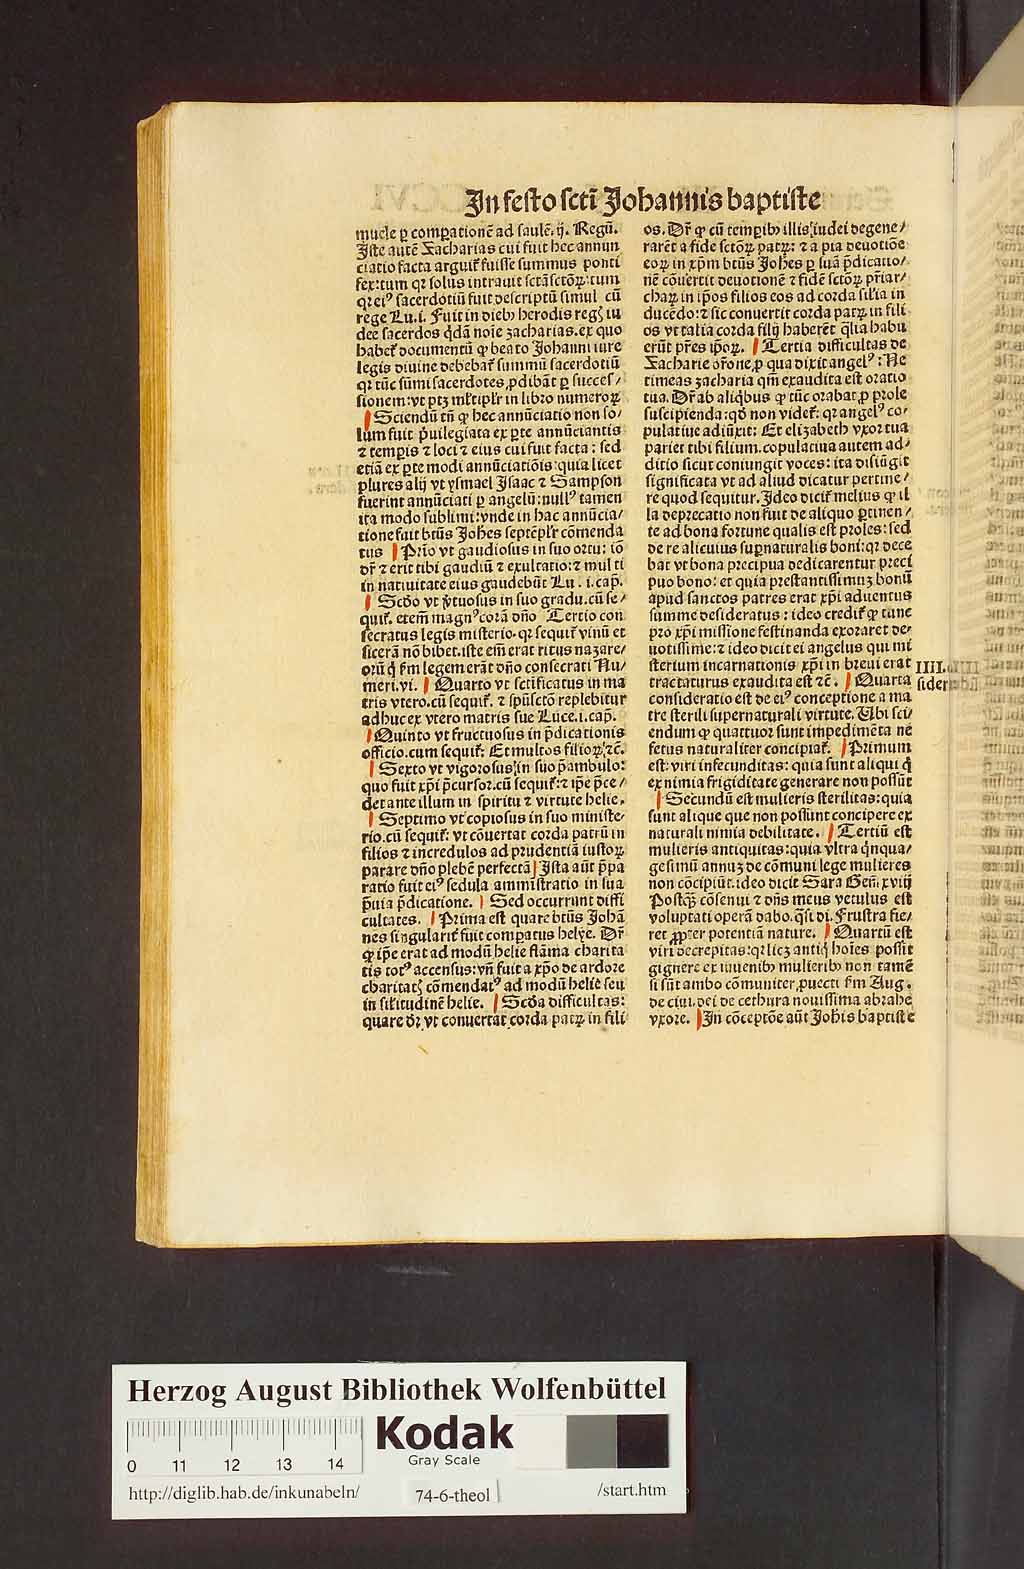 In festo scti Johannis baptiste
muele ꝑ comꝑationē ad saulē. ij. Regū.
Iste autē Zacharias cui fuit hec annun
ciatio facta arguit᷑ fuisse summus ponti
fex: tum qꝛ solus intrauit sctāsctōꝝ: tum
qꝛ eiꝰ sacerdotiū fuit descriptū simul cū
rege Lu. i. Fuit in dieb⁹ herodis regꝭ iu
dee sacerdos q̄dā noīe zacharias. ex quo
habet᷑ documentū ꝙ beato Johanni iure
legis diuine debebat᷑ summū sacerdotiū
qꝛ tūc sūmi sacerdotes ꝓdibāt ꝑ succes/
sionem: vt ptꝫ ml̓tipl̓r in libro numeroꝝ
Sciendū tn̄ ꝙ hec annūciatio non so/
lum fuit p̄uilegiata ex ꝑte annūciantis
⁊ temꝑis ⁊ loci ⁊ eius cui fuit facta: sed
etiā ex ꝑte modi annūciatiōis: quia licet
plures alij vt ysmael Isaac ⁊ Sampson
fuerint annūciati ꝑ angelū: nullꝰ tamen
ita modo sublimi: vnde in hac annūcia/
tione fuit btūs Joh̄es septēpl̓r cōmenda
tus Prīo vt gaudiosus in suo ortu: iō
dr̄ ⁊ erit tibi gaudiū ⁊ exultatio: ⁊ multi
in natiuitate eius gaudebūt Lu. i. cap̄.
Scd̓o vt v̓tuosus in suo gradu. cū se/
quit᷑. etem̄ magnꝰ corā dn̄o Tertio con
secratus legis misterio. qꝛ sequit᷑ vinū et
sicerā nō bibet. iste em̄ erat ritus nazare/
orū q̄ ẜm legem erāt dn̄o consecrati Nu/
meri. vi. Quarto vt sctificatus in ma
tris vtero. cū sequit᷑. ⁊ spūsctō replebitur
adhuc ex vtero matris sue Luce. i. cap̄.
Quinto vt fructuosus in p̄dicationis
officio. cum sequit᷑: Et multos filioꝝ ⁊c̄.
Sexto vt vigorosus in suo p̄ambulo:
quo fuit xp̄i p̄cursor. cū sequit᷑: ⁊ ip̄e p̄ce/
det ante illum in spiritu ⁊ virtute helie.
Septimo vt copiosus in suo ministe/
rio. cū sequit᷑: vt cōuertat corda patrū in
filios ⁊ incredulos ad prudentiā iustoꝝ
parare dn̄o plebē perfectā Ista aūt p̄pa
ratio fuit eiꝰ sedula amministratio in sua
p̄uia p̄dicatione. Sed occurrunt diffi
cultates. Prima est quare btūs Johā
nes singularit᷑ fuit comꝑatus helye. Dr̄
ꝙ ip̄e erat ad modū helie flāma charita
tis totꝰ accensus: vn̄ fuit a xp̄o de ardore
charitatꝭ cōmendatꝰ ad modū helie seu
in sil̓itudinē helie. Scd̓a difficultas:
quare dr̄ vt conuertat corda patꝝ in fili
os. Dr̄ ꝙ cū temꝑib⁹ illis iudei degene/
rarēt a fide sctōꝝ patꝝ: ⁊ a pia deuotiōe
eoꝝ in xp̄m btūs Joh̄es ꝑ suā p̄dicatio/
nē cōuertit deuotionē ⁊ fidē sctōꝝ pr̄iar/
chaꝝ in ip̄os filios eos ad corda sil̓ia in
ducēdo: ⁊ sic conuertit corda patꝝ in fili
os vt talia corda filij haberēt q̄lia habu
erūt pr̄es ip̄oꝝ. Tertia difficultas de
Zacharie or̄one, ꝓ qua dixit angelꝰ: Ne
timeas zacharia qm̄ exaudita est oratio
tua. Dr̄ ab aliq̄bus ꝙ tūc orabat ꝓ prole
suscipienda: qd̓ non videt᷑: qꝛ angelꝰ co/
pulatiue adiūxit: Et elizabeth vxor tua
pariet tibi filium. copulatiua autem ad/
ditio sicut coniungit voces: ita disiūgit
significata vt ad aliud dicatur pertine/
re quod sequitur. Ideo dicit᷑ melius ꝙ il
la deprecatio non fuit de aliquo ꝑtinen/
te ad bona fortune qualis est proles: sed
de re alicuius suꝑnaturalis boni: qꝛ dece
bat vt bona precipua dedicarentur preci
puo bono: et quia prestantissimuꝫ bonū
apud sanctos patres erat xp̄i aduentus
summe desideratus: ideo credit᷑ ꝙ tunc
pro xp̄i missione festinanda exoraret de/
uotissime: ⁊ ideo dicit ei angelus qui mi
sterium incarnationis xp̄i in breui erat
tractaturus exaudita est ⁊c̄. Quarta
consideratio est de eiꝰ conceptione a ma
tre sterili supernaturali virtute. Ubi sci/
endum ꝙ quattuor sunt impedimēta ne
fetus naturaliter concipiat᷑. Primum
est: viri infecunditas: quia sunt aliqui q̄
ex nimia frigiditate generare non possūt
Secundū est mulieris sterilitas: quia
sunt alique que non possūnt concipere ex
naturali nimia debilitate. Tertiū est
mulieris antiquitas: quia vltra q̄nqua/
gesimū annuꝫ de cōmuni lege mulieres
non cōcipiūt. ideo dicit Sara Gen̄. xviij
Postq̄ꝫ cōsenui ⁊ dn̄s meus vetulus est
voluptati operā dabo. q̄si di. Frustra fie/
ret ꝓpter potentiā nature. Quartū est
viri decrepitas: qꝛ licꝫ antiq̄ hoīes possīt
gignere ex iuuenib⁹ mulierib⁹ non tamē
si sūt ambo cōmuniter ꝓuecti ẜm Aug.
de ciui. dei de cethura nouissima abrahe
vxore. In cōceptōe aūt Joh̄is baptiste
IIII.
sider
Herzog August Bibliothek Wolfenbüttel
Kodak
Gray Scale
0 11 12 13 14
http://diglib.hab.de/inkunabeln/
74-6-theol
/start.htm